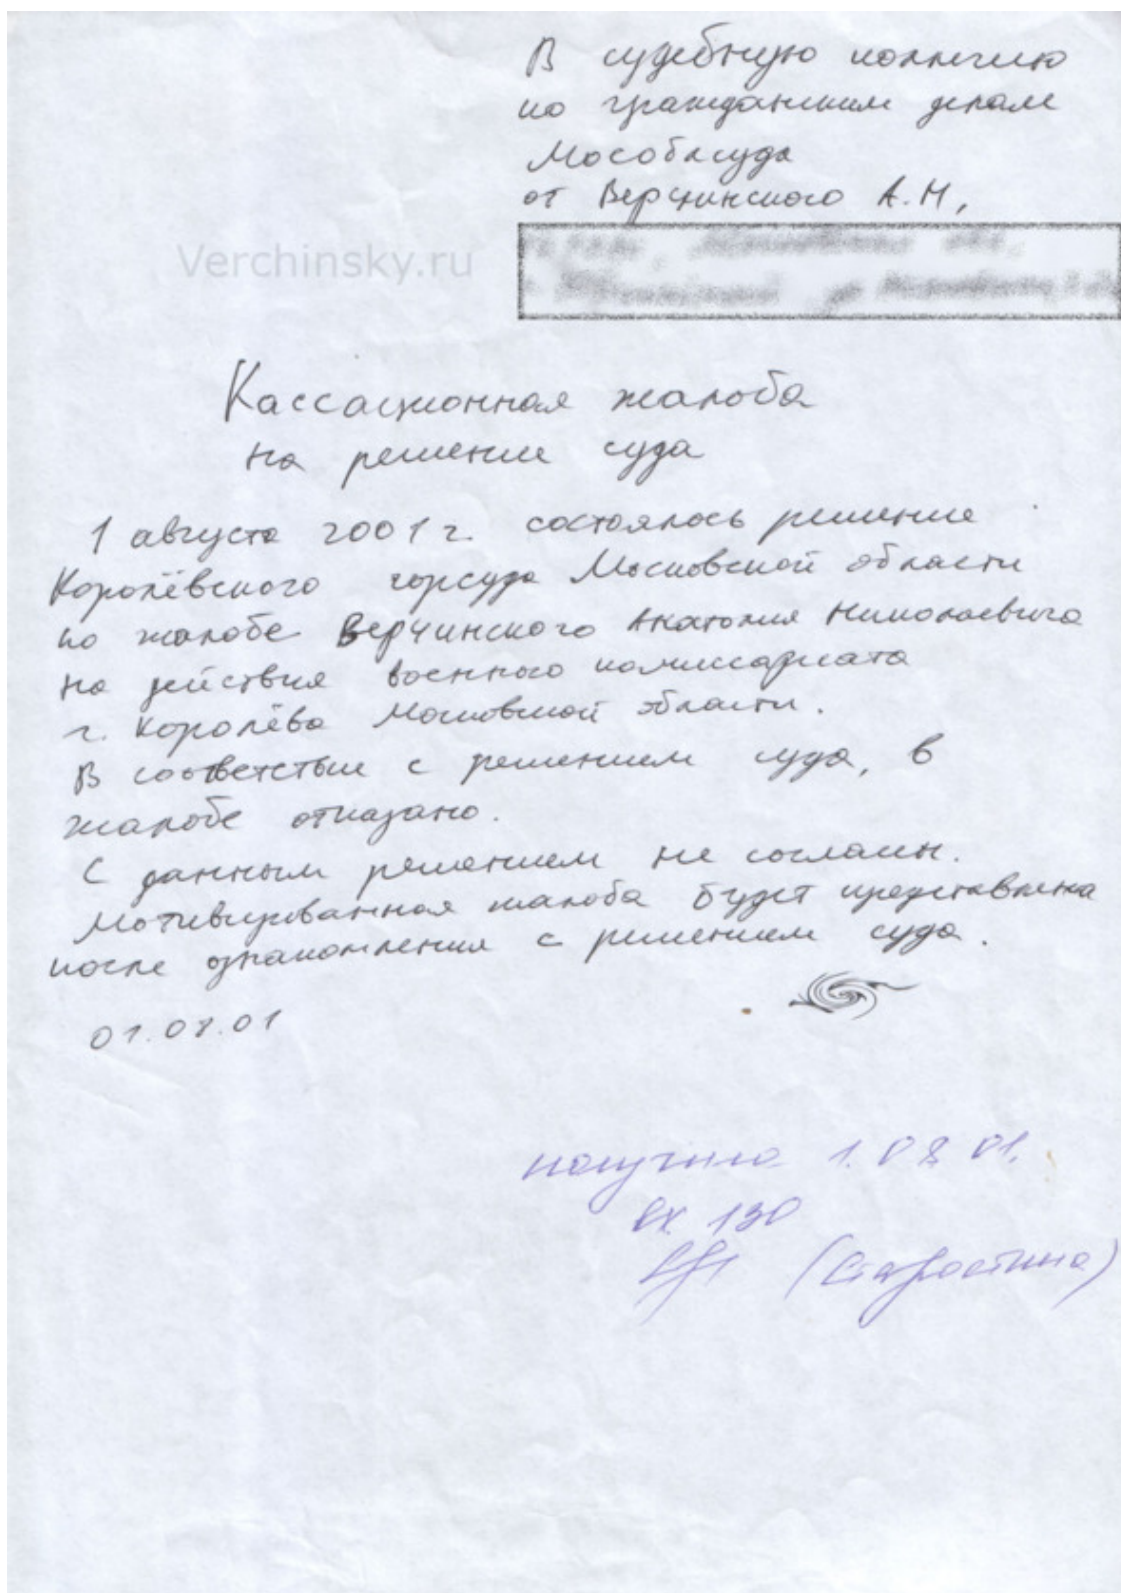 В судебную коллегию
по гражданским делам
Мособлсуда
от Верчинского А.Н,
Verchinsky.ru
Кассационная жалоба
на решение суда
1 августа 2001 г. состоялось решение
Королёвского горсуда Московской области
по жалобе Верчинского Анатолия Николаевича
на действия военного комиссариата
г. Королёва Московской области.
В соответствие с решением суда, в
жалобе отказано.
С данным решением не согласен.
Мотивированная жалоба будет представлена
после ознакомления с решением суда.
01.08.01
получено 1.08.01.
вх 130
(Старостина)